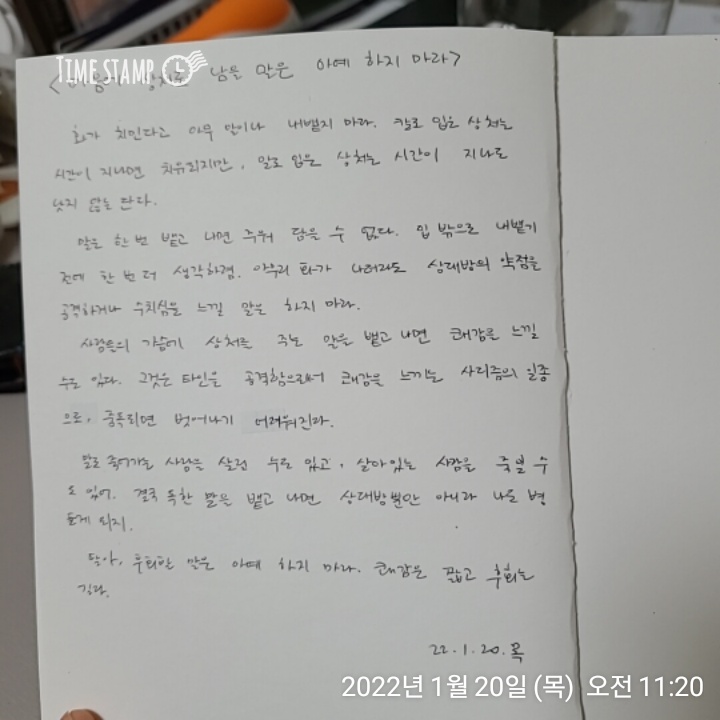 TIME STAMP
<마음에 상처로 남을 말은 아예 하지 마라>
화가 치민다고 아무 말이나 내뱉지 마라. 칼로 입은 상처는
시간이 지나면 치유되지만, 말로 입은 상처는 시간이 지나도
낫지 않는 단다.
말은 한 번 뱉고 나면 주워 담을 수 없다. 입 밖으로 내뱉기
전에 한 번 더 생각하렴. 아무리 화가 나더라도 상대방의 약점을
공격하거나 수치심을 느낄 말은 하지 마라.
사람들의 가슴에 상처를 주는 말을 뱉고 나면 쾌감을 느낄
수도 있다. 그것은 타인을 공격함으로써 쾌감을 느끼는 사디즘의 일종
으로, 중독되면 벗어나기 어려워진다.
말로 죽어가는 사람을 살릴 수도 있고, 살아있는 사람을 죽일 수
도 있어. 결국 독한 말을 뱉고 나면 상대방뿐만 아니라 나도 병
들게 되지.
딸아, 후회할 말은 아예 하지 마라. 쾌감은 짧고 후회는
길다.
22.1.20.목
2022년 1월 20일 (목) 오전 11:20